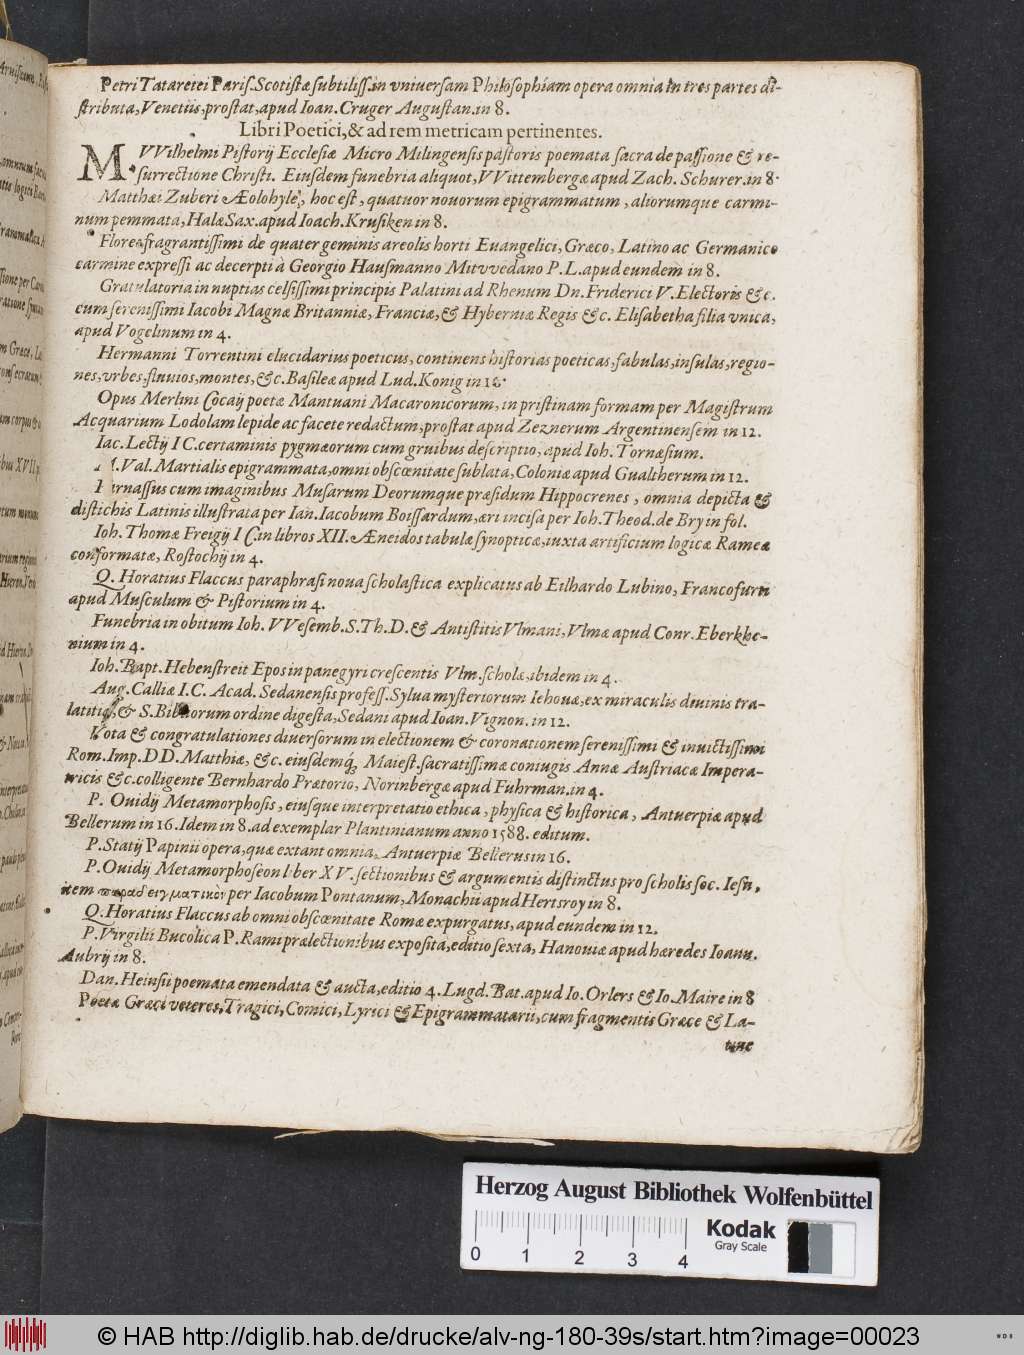 Petri Tatareiei Paris. Scotistæ subtiliss. in vniuersam Philosophiam opera omnia in tres partes di-
stributa, Venetiis, prostat, apud Ioan. Cruger Augustan. in 8.
Libri Poetici, & ad rem metricam pertinentes.
M. VVilhelmi Pistorij Ecclesiæ Micro Milingensis pastoris poemata sacra de passione & re-
surrectione Christi. Eiusdem funebria aliquot, VVittembergæ apud Zach. Schurer. in 8.
Matthæi Zuberi Æolohyle, hoc est, quatuor nouorum epigrammatum, aliorumque carmi-
num pemmata, Halæ Sax. apud Ioach. Krusiken in 8.
Flores fragrantissimi de quater geminis areolis horti Euangelici, Græco, Latino ac Germanico
carmine expressi ac decerpti à Georgio Hausmanno Mitvvedano P. L. apud eundem in 8.
Gratulatoria in nuptias celsissimi principis Palatini ad Rhenum Dn. Friderici V. Electoris &c.
cum serenissimi Iacobi Magnæ Britanniæ, Franciæ, & Hyberniæ Regis &c. Elisabetha filia vnica,
apud Vogelinum in 4.
Hermanni Torrentini elucidarius poeticus, continens historias poeticas, fabulas, insulas, regio-
nes, vrbes, fluuios, montes, &c. Basileæ apud Lud. Konig in
Opus Merlini Cocaij poetæ Mantuani Macaronicorum, in pristinam formam per Magistrum
Acquarium Lodolam lepide ac facete redactum, prostat apud Zeznerum Argentinensem in 12.
Iac. Lectij I C. certaminis pygmæorum cum gruibus descriptio, apud Ioh. Tornæsium.
M. Val. Martialis epigrammata, omni obscœnitate sublata, Coloniæ apud Gualtherum in 12.
Parnassus cum imaginibus Musarum Deorumque præsidum Hippocrenes, omnia depicta &
distichis Latinis illustrata per Ian. Iacobum Boissardum, æri incisa per Ioh. Theod. de Bry in fol.
Ioh. Thomæ Freigij I C. in libros XII. Æneidos tabulæ synopticæ, iuxta artificium logicæ Rameæ
conformatæ, Rostochij in 4.
Q. Horatius Flaccus paraphrasi noua scholastica explicatus ab Eilhardo Lubino, Francofurti
apud Musculum & Pistorium in 4.
Funebria in obitum Ioh. VVesemb. S. Th. D. & Antistitis Vlmani, Vlmæ apud Conr. Eberkhe-
nium in 4.
Ioh. Bapt. Hebenstreit Epos in panegyri crescentis Vlm. scholæ, ibidem in 4.
Aug. Calliæ I. C. Acad. Sedanensis profess. Sylua mysteriorum Iehouæ, ex miraculis diuinis tra-
latitia, & S. Bibliorum ordine digesta, Sedani apud Ioan. Vignon. in 12.
Vota & congratulationes diuersorum in electionem & coronationem serenissimi & inuictissimi
Rom. Imp. D D. Matthiæ, &c. eiusdemq́; Maiest. sacratissimæ coniugis Annæ Austriacæ Impera-
tricis &c. colligente Bernhardo Prætorio, Norinbergæ apud Fuhrman. in 4.
P. Ouidij Metamorphosis, eiusque interpretatio ethica, physica & historica, Antuerpiæ apud
Bellerum in 16. Idem in 8. ad exemplar Plantinianum anno 1588. editum.
P. Statij Papinii opera, quæ extant omnia, Antuerpiæ Bellerus in 16.
P. Ouidij Metamorphoseon liber XV. sectionibus & argumentis distinctus pro scholis soc. Iesu,
item παραδειγματικὸι per Iacobum Pontanum, Monachii apud Hertsroy in 8.
Q. Horatius Flaccus ab omni obscœnitate Romæ expurgatus, apud eundem in 12.
P. Virgilii Bucolica P. Rami prælectionibus exposita, editio sexta, Hanouiæ apud hæredes Ioann.
Aubrij in 8.
Dan. Heinsii poemata emendata & aucta, editio 4. Lugd. Bat. apud Io. Orlers & Io. Maire in 8
Poetæ Græci veteres, Tragici, Comici, Lyrici & Epigrammatarii, cum fragmentis Græce & La-
tine
Herzog August Bibliothek Wolfenbüttel
Kodak
Gray Scale
0 1 2 3 4
© HAB http://diglib.hab.de/drucke/alv-ng-180-39s/start.htm?image=00023